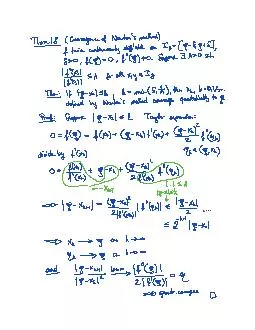 Theorem 1.8 (Convergence of Newton's method)
f twice continuously diff'able on I_δ = [φ-δ, φ+δ],
δ>0, f(φ)=0, f''(φ)≠0. Suppose ∃ A>0 s.t.
|f''(x)| / |f'(y)| ≤ A for all x,y ∈ I_δ
Then: If |φ-x₀| ≤ h, h = min(δ, 1/A), then x_k, k=0,1,...
defined by Newton's method converges quadratically to φ
Proof: Suppose |φ-x_k| ≤ h Taylor expansion:
0 = f(φ) = f(x_k) + (φ-x_k) f'(x_k) + (φ-x_k)²/2 f''(η_k)
divide by f'(x_k) η_k ∈ (φ, x_k)
0 = f(x_k)/f'(x_k) + φ-x_k + (φ-x_k)²/(2f'(x_k)) f''(η_k)
-x_{k+1} |..| ≤ A
⇒ |φ-x_{k+1}| = (φ-x_k)²/(2|f'(x_k)|) |f''(η_k)| ≤ |φ-x_k|/2 ....
≤ 2^{-k-1} |φ-x₀|
⇒ x_k → φ as k→∞
η_k → φ as k→∞
and |φ-x_{k+1}| / |φ-x_k|² → |f''(φ)| / 2|f'(φ)| = q
⇒ quadr. convergence □